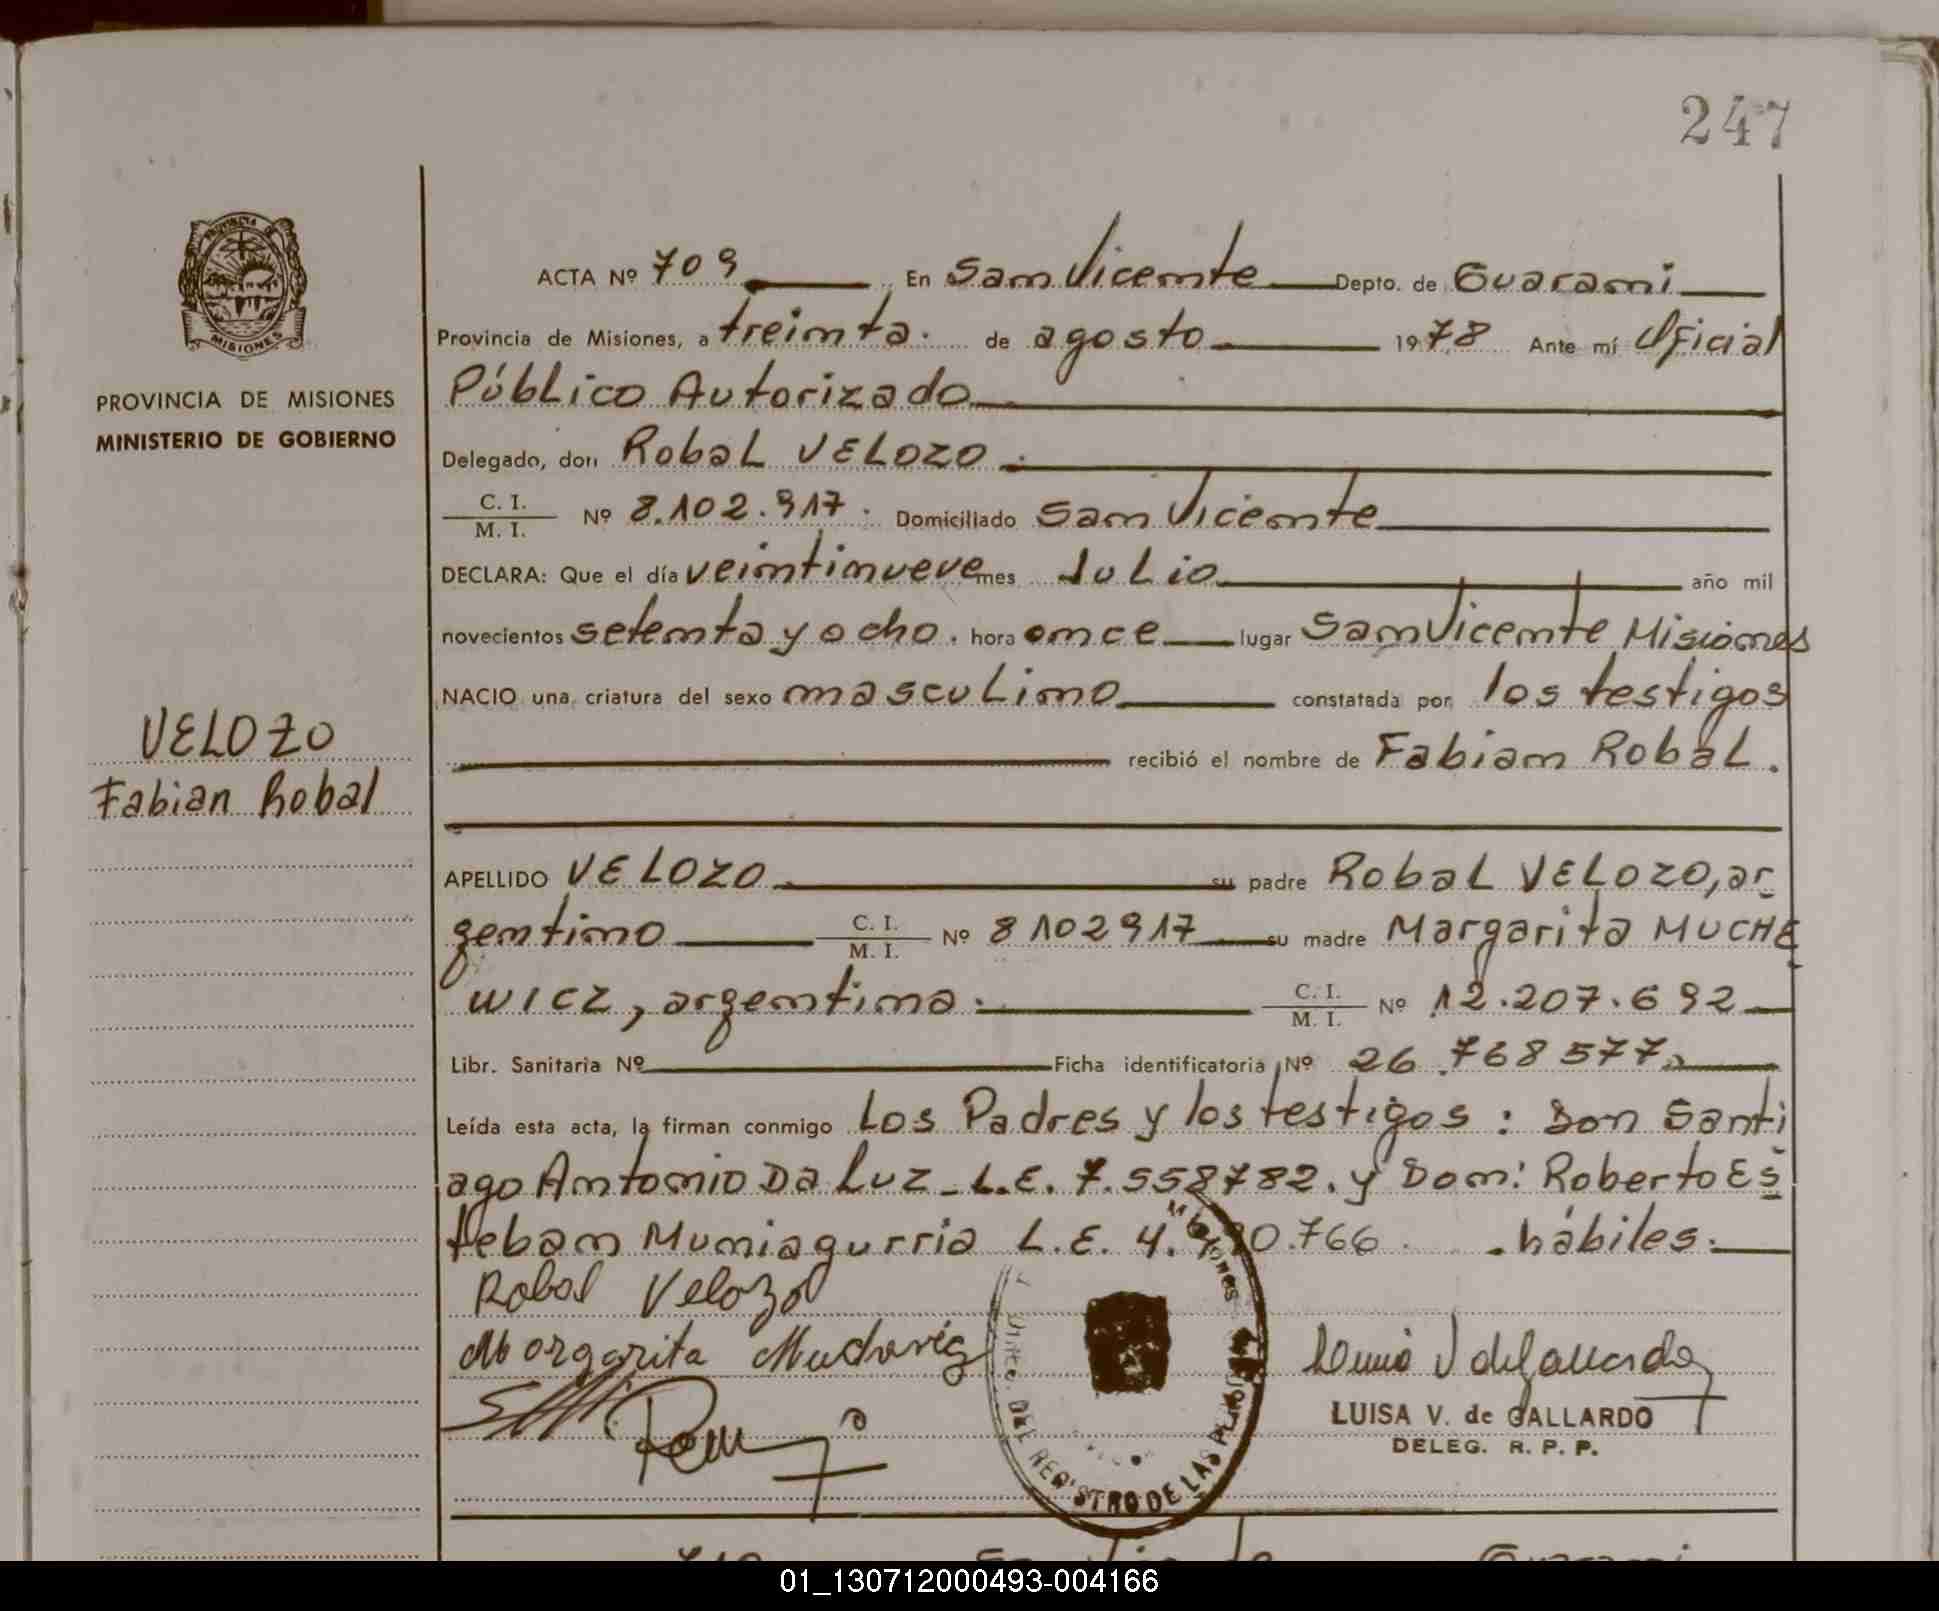 247
PROVINCIA DE
MISIONES
PROVINCIA DE MISIONES
MINISTERIO DE GOBIERNO
VELOZO
Fabian Robal
ACTA Nº 709 En San Vicente Depto. de Guarani
Provincia de Misiones, a treinta. de agosto 1978 Ante mí Oficial
Público Autorizado
Delegado, don Robal VELOZO.
C. I.
M. I. Nº 8.102.917. Domiciliado San Vicente
DECLARA: Que el día veintinueve mes Julio año mil
novecientos setenta y ocho. hora once lugar San Vicente Misiones
NACIO una criatura del sexo masculino constatada por los testigos
recibió el nombre de Fabian Robal.
APELLIDO VELOZO su padre Robal VELOZO, ar
gentino C. I. M. I. Nº 8102917 su madre Margarita MUCHE
WICZ, argentina. C. I. M. I. Nº 12.207.692
Libr. Sanitaria Nº Ficha identificatoria Nº 26.768577
Leída esta acta, la firman conmigo Los Padres y los testigos: Don Santi
ago Antonio Da Luz - L.E. 7.558782. y Don: Roberto Es
teban Muniagurria L.E. 4. 0.766 . hábiles.
Robal Velozo
Margarita
LUISA V. de GALLARDO
DELEG. R. P. P.
Misiones
DEL REGISTRO DE LAS PERSONAS
01_130712000493-004166